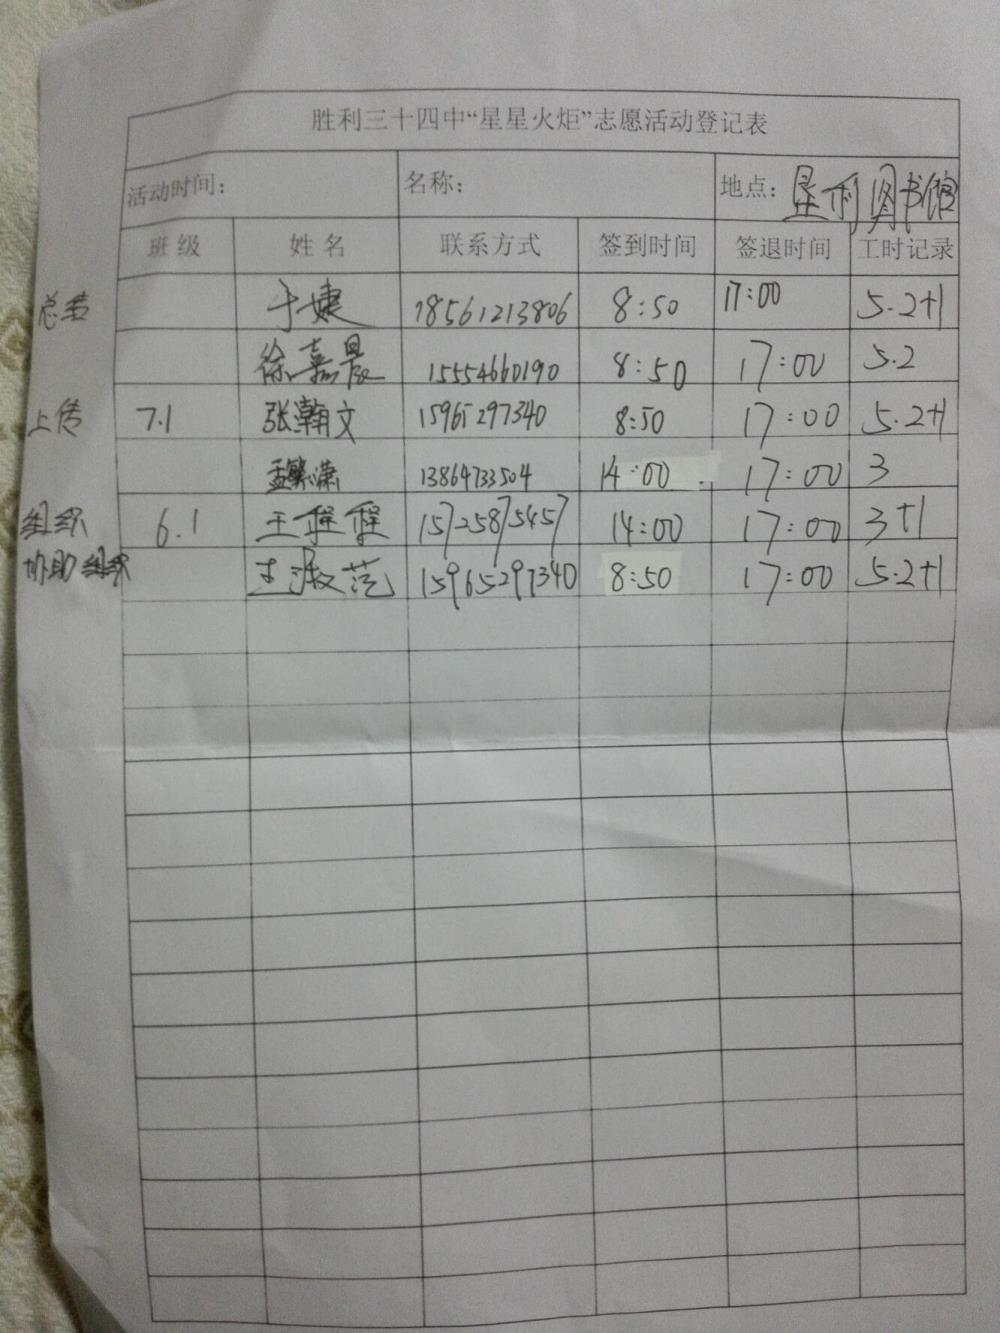 胜利三十四中“星星火炬”志愿活动登记表
活动时间： 名称： 地点：垦利图书馆
班级 姓名 联系方式 签到时间 签退时间 工时记录
总结 于婕 18561213806 8:50 17:00 5.2+1
徐嘉晨 15554660190 8:50 17:00 5.2
上传 7.1 张瀚文 15965297340 8:50 17:00 5.2+1
孟繁潇 13864733504 14:00 17:00 3
组织 6.1 王程程 15725875457 14:00 17:00 3+1
协助组织 王淑范 15965297340 8:50 17:00 5.2+1